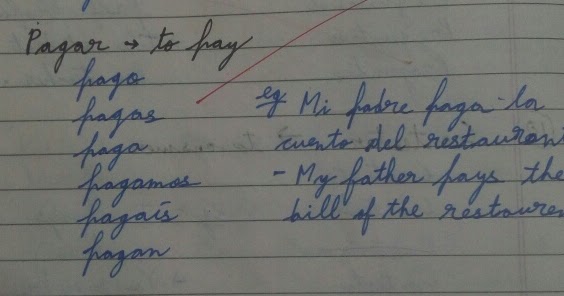 Pagar → to pay
pago
pagas
paga
pagamos
pagaís
pagan
eg Mi padre paga la
cuento del restauran
- My father pays the
bill of the restaure